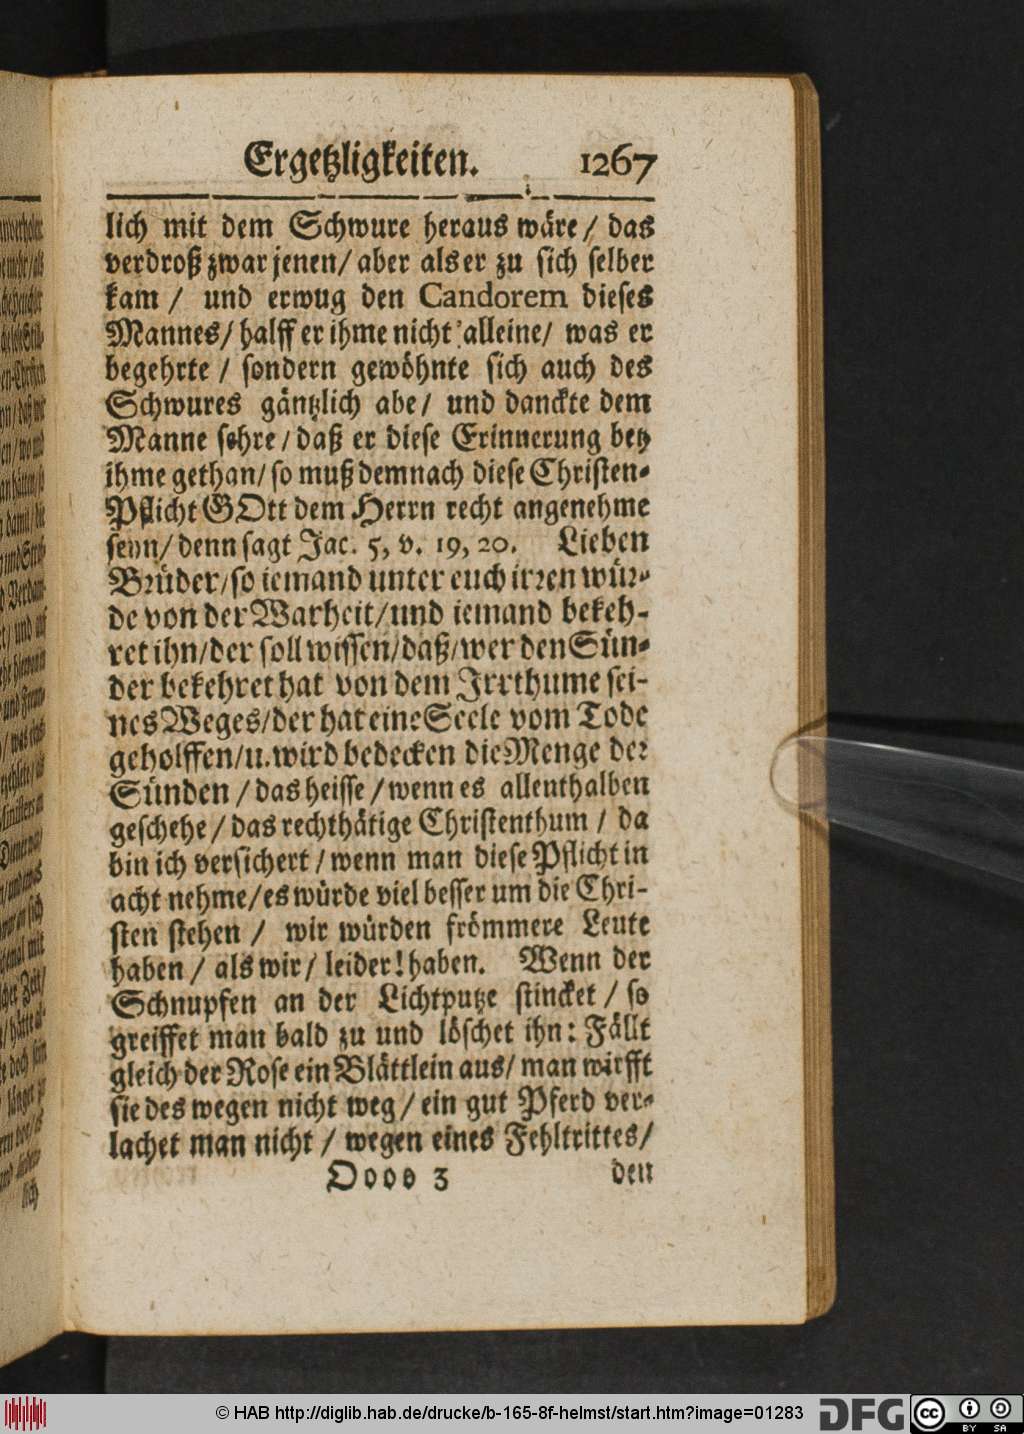 Ergetzligkeiten. 1267
lich mit dem Schwure heraus wäre / das
verdroß zwar jenen / aber als er zu sich selber
kam / und erwug den Candorem dieses
Mannes / halff er ihme nicht alleine / was er
begehrte / sondern gewöhnte sich auch des
Schwures gäntzlich abe / und danckte dem
Manne sehre / daß er diese Erinnerung bey
ihme gethan / so muß demnach diese Christen-
Pflicht GOtt dem Herrn recht angenehme
seyn / denn sagt Jac. 5, v. 19, 20. Lieben
Brüder / so iemand unter euch irren wür-
de von der Warheit / und iemand bekeh-
ret ihn / der soll wissen / daß / wer den Sün-
der bekehret hat von dem Irrthume sei-
nes Weges / der hat eine Seele vom Tode
geholffen / u. wird bedecken die Menge der
Sünden / das heisse / wenn es allenthalben
geschehe / das rechthätige Christenthum / da
bin ich versichert / wenn man diese Pflicht in
acht nehme / es würde viel besser um die Chri-
sten stehen / wir würden frömmere Leute
haben / als wir / leider! haben. Wenn der
Schnupfen an der Lichtputze stincket / so
greiffet man bald zu und löschet ihn: Fällt
gleich der Rose ein Blättlein aus / man wirfft
sie des wegen nicht weg / ein gut Pferd ver-
lachet man nicht / wegen eines Fehltrittes /
Oooo 3 den
© HAB http://diglib.hab.de/drucke/b-165-8f-helmst/start.htm?image=01283
DFG
cc BY SA